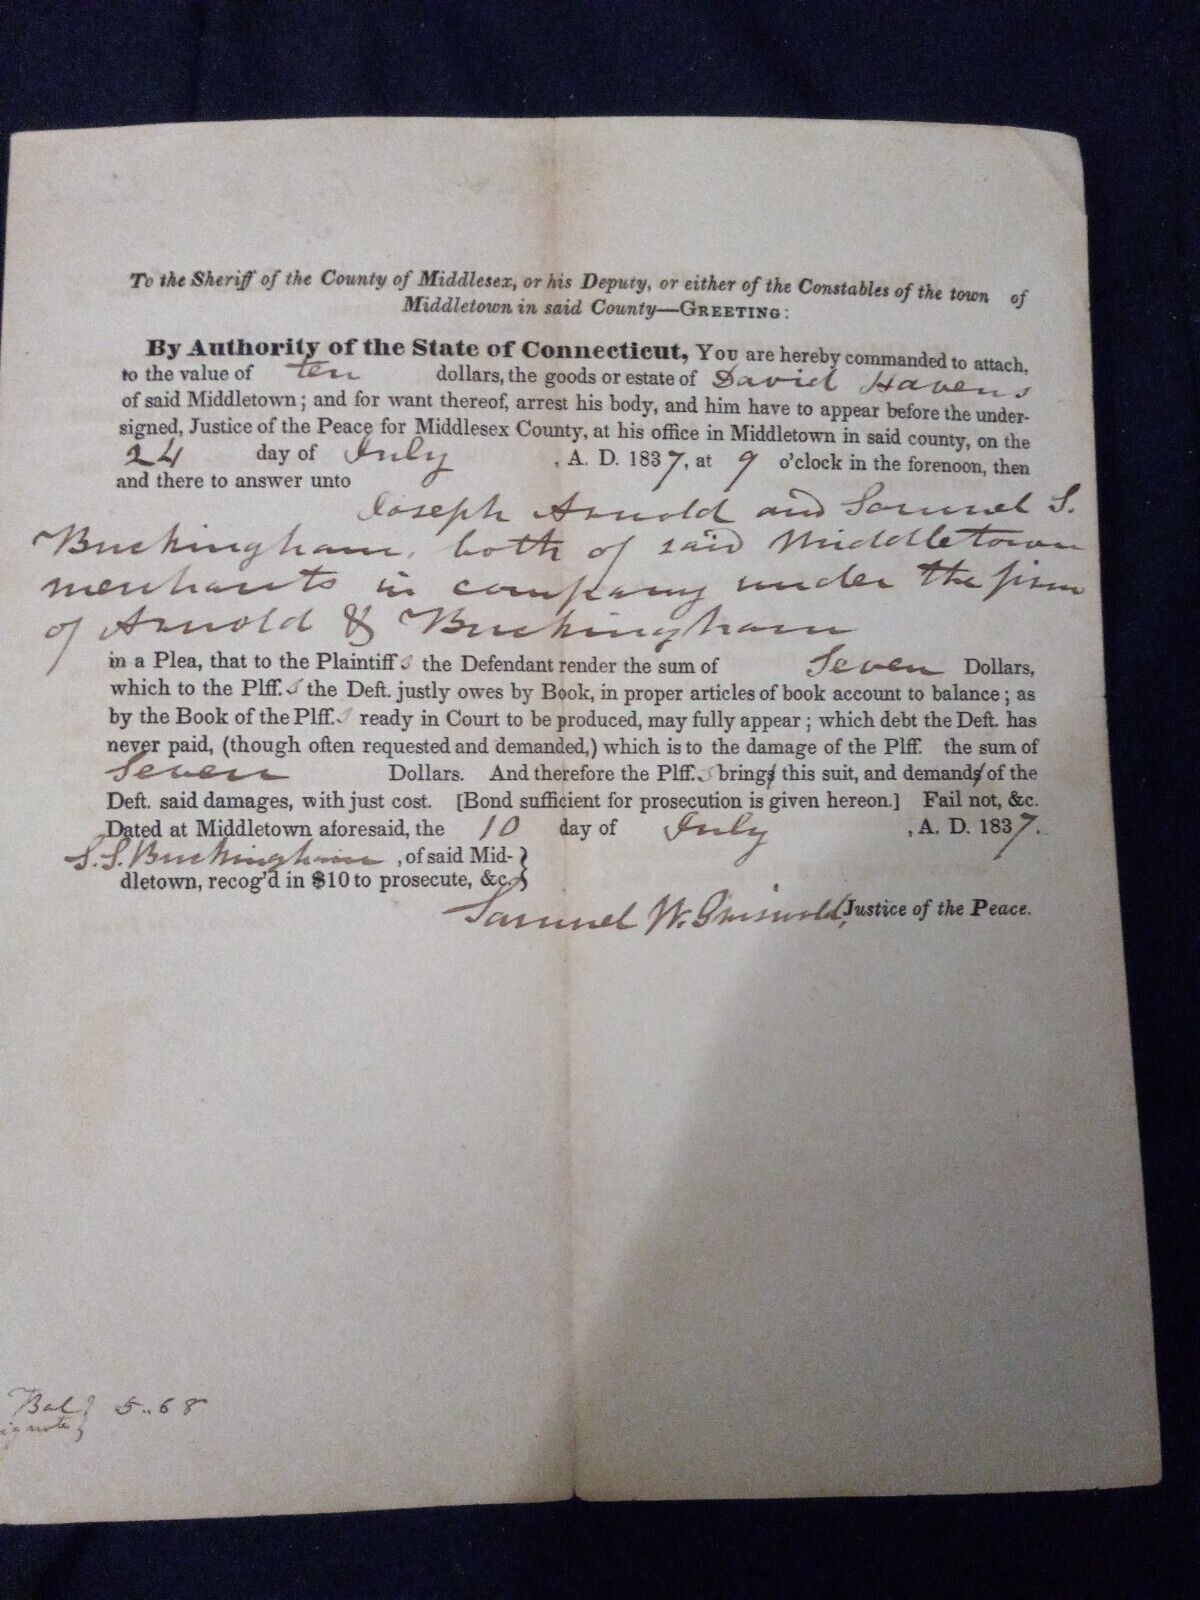 To the Sheriff of the County of Middlesex, or his Deputy, or either of the Constables of the town of
Middletown in said County—GREETING:
By Authority of the State of Connecticut, You are hereby commanded to attach,
to the value of ten dollars, the goods or estate of David Havens
of said Middletown; and for want thereof, arrest his body, and him have to appear before the under-
signed, Justice of the Peace for Middlesex County, at his office in Middletown in said county, on the
24 day of July, A. D. 1837, at 9 o'clock in the forenoon, then
and there to answer unto
Joseph Arnold and Samuel S.
Buckingham, both of said Middletown
merchants in company under the firm
of Arnold & Buckingham
in a Plea, that to the Plaintiffs the Defendant render the sum of Seven Dollars,
which to the Plff.s the Deft. justly owes by Book, in proper articles of book account to balance; as
by the Book of the Plff.s ready in Court to be produced, may fully appear; which debt the Deft. has
never paid, (though often requested and demanded,) which is to the damage of the Plff. the sum of
Seven Dollars. And therefore the Plff.s bring this suit, and demand of the
Deft. said damages, with just cost. [Bond sufficient for prosecution is given hereon.] Fail not, &c.
Dated at Middletown aforesaid, the 10 day of July, A. D. 1837.
S. S. Buckingham, of said Mid-
dletown, recog'd in $10 to prosecute, &c.
Samuel W. Griswold, Justice of the Peace.
Bal 5..68
note